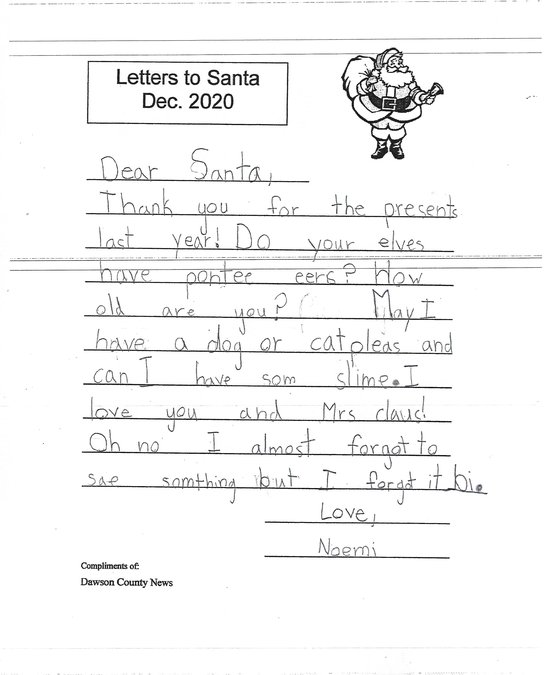 Letters to Santa
Dec. 2020
Dear Santa,
Thank you for the presents
last year! Do your elves
have pontee eers? How
old are you? May I
have a dog or cat pleas and
can I have som slime. I
love you and Mrs claus!
Oh no I almost forgot to
sae somthing but I forgot it bi.
Love,
Noemi
Compliments of:
Dawson County News